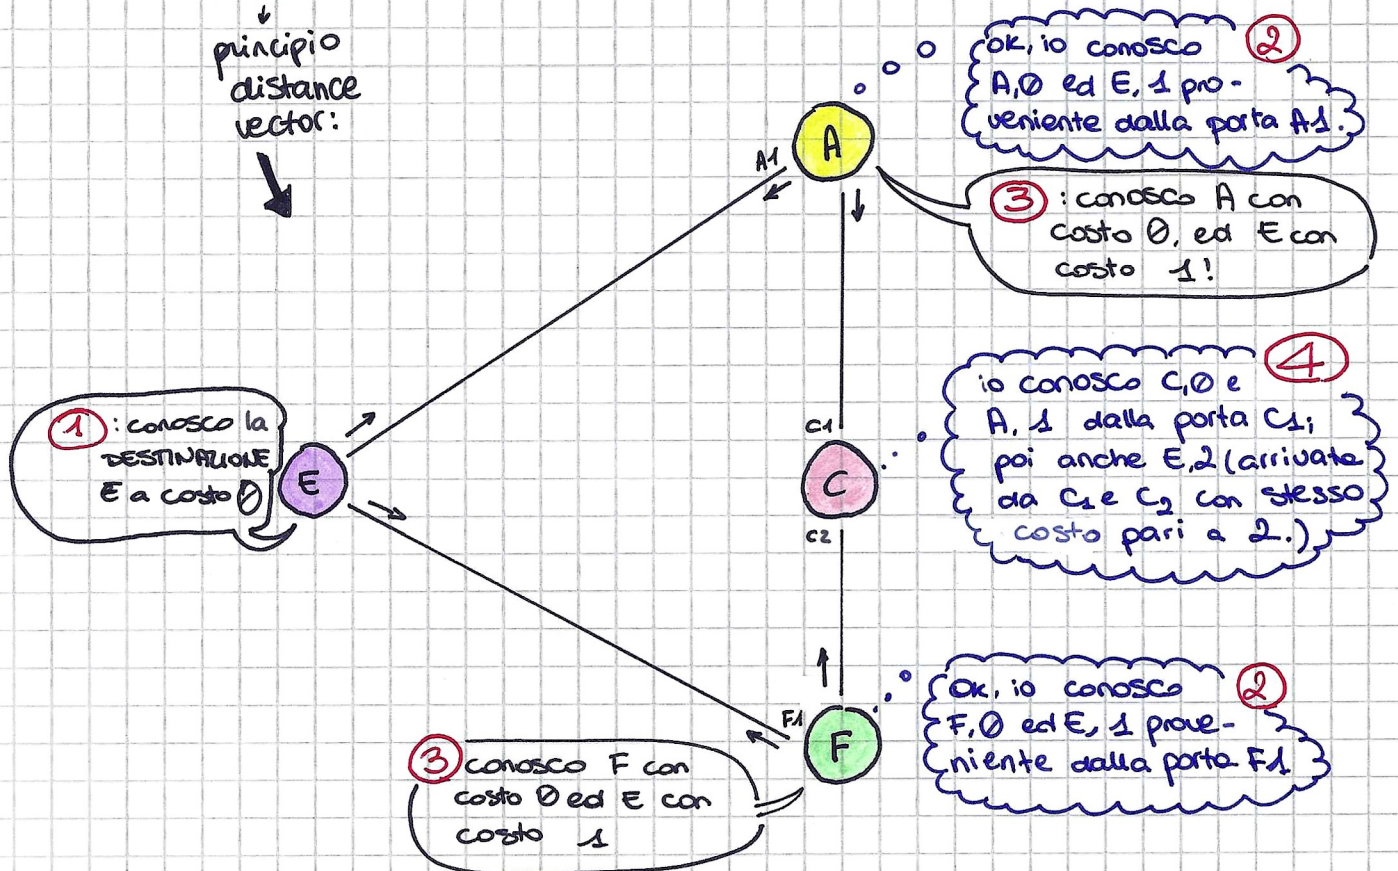 principio
distance
vector:
ok, io conosco
A,0 ed E, 1 pro-
veniente dalla porta A1.
2
A
A1
3 : conosco A con
costo 0, ed E con
costo 1!
1 : conosco la
DESTINAZIONE
E a costo 0
E
C1
C
C2
4
io conosco C,0 e
A, 1 dalla porta C1;
poi anche E,2 (arrivate
da C1 e C2 con stesso
costo pari a 2.)
F1
F
Ok, io conosco
F,0 ed E, 1 prove-
niente dalla porta F1
2
3 conosco F con
costo 0 ed E con
costo 1